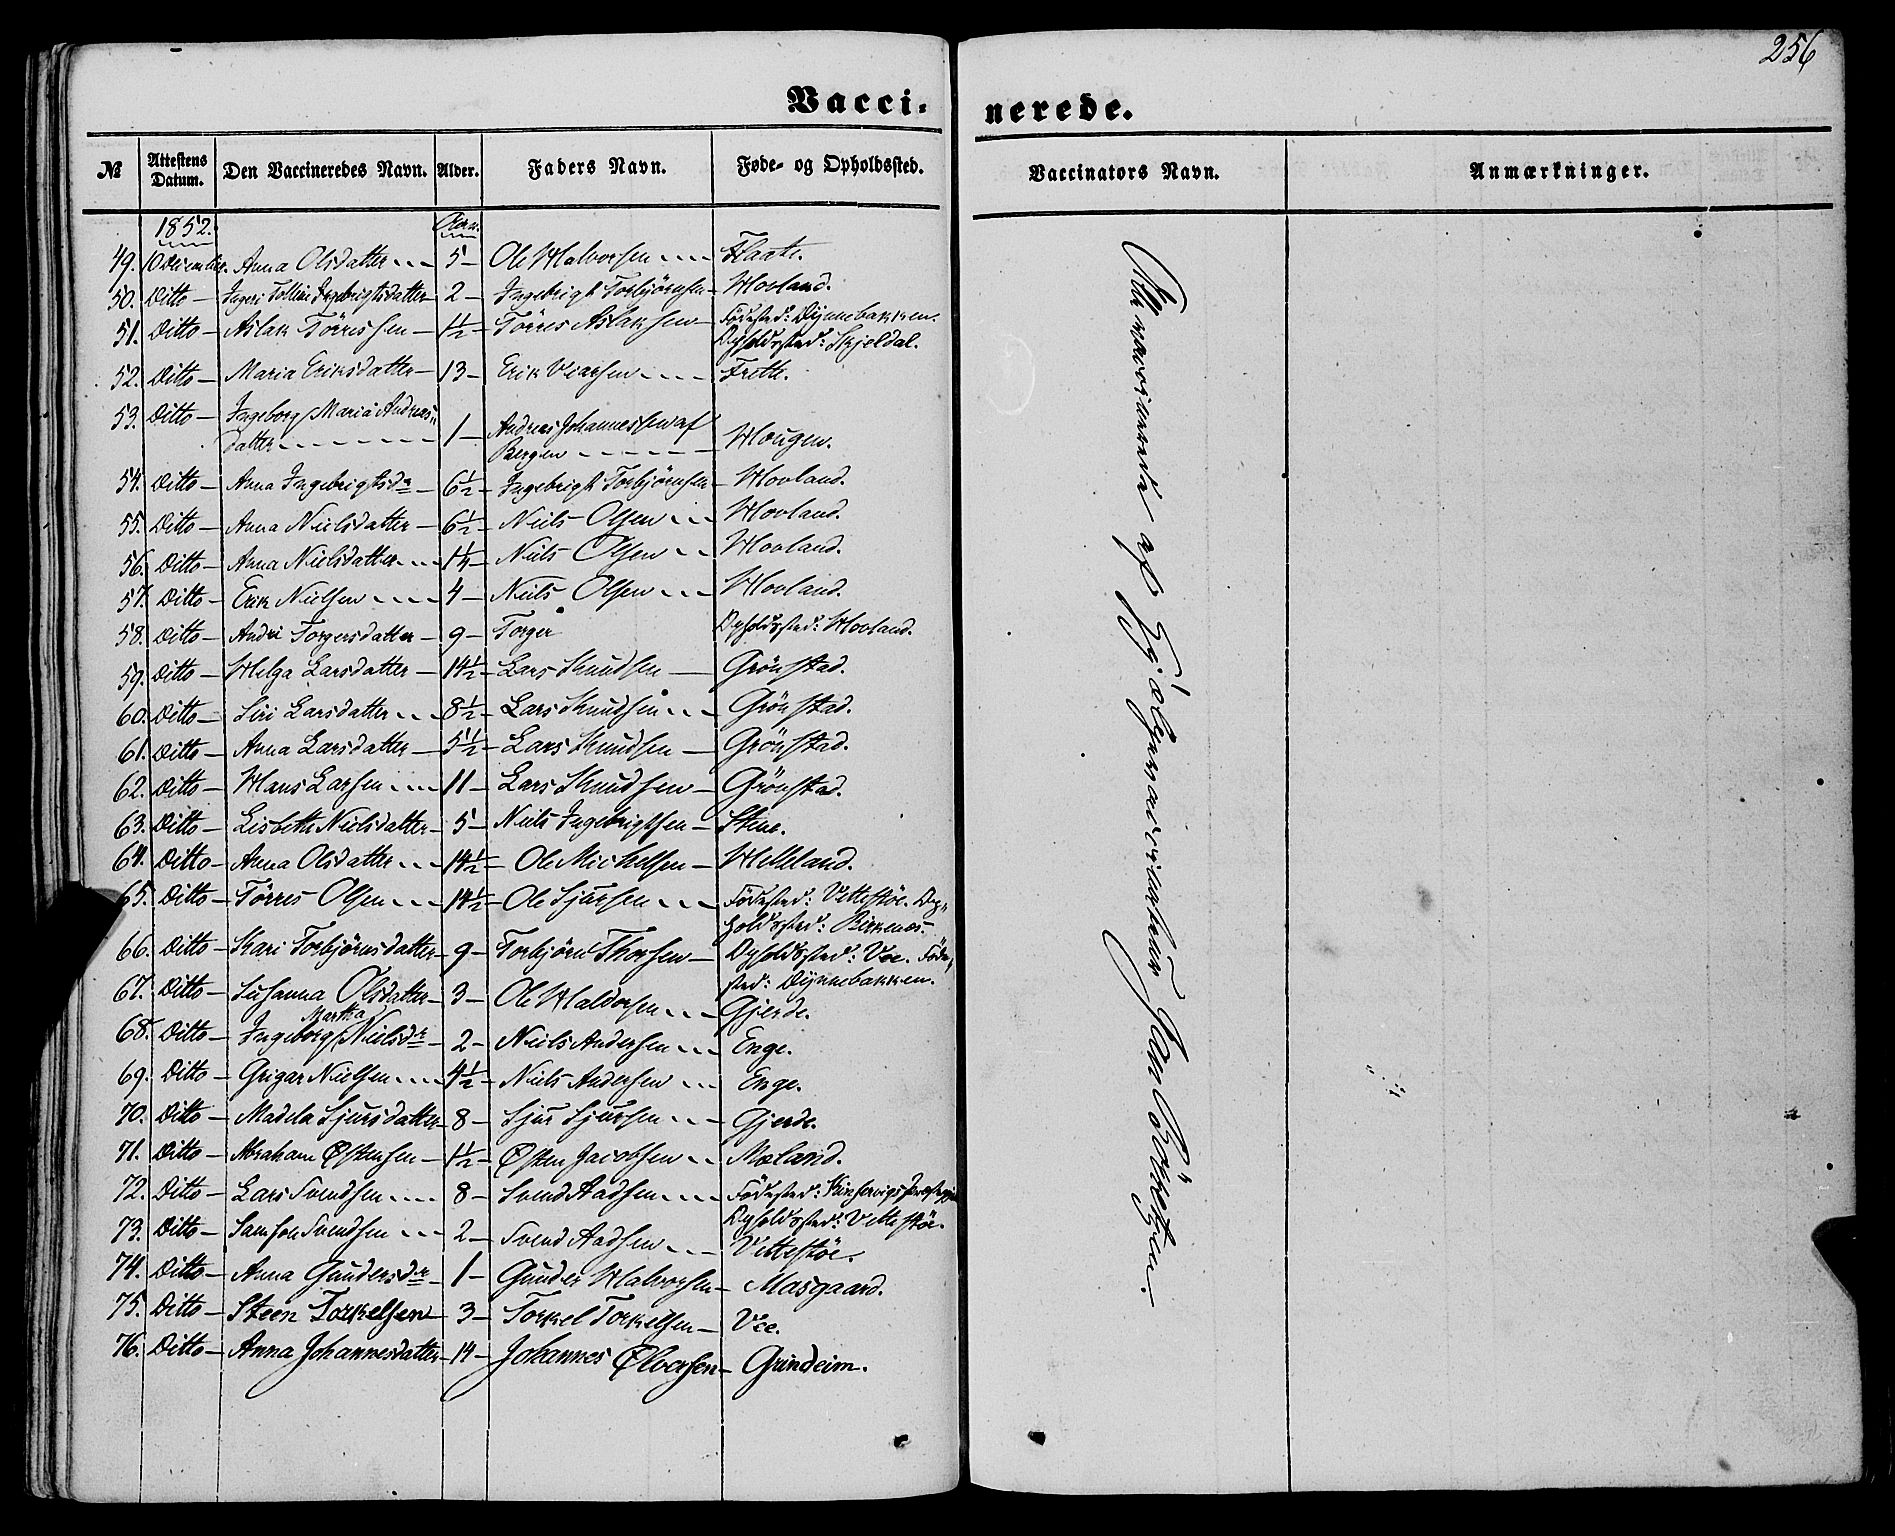 256
Vacci-nerede.
№ Attestens Datum. Den Vaccineredes Navn. Alder. Faders Navn. Føde- og Opholdssted. Vaccinators Navn. Anmærkninger.
1852. Aar.
49. 10 December. Anna Olsdatter 5 Ole Halvorsen Flaate.
50. Ditto Ingeri Tolline Ingebrigtsdatter 2 Ingebrigt Torbjörnsen Hovland.
51. Ditto Aslak Törresen 1½ Törres Aslaksen Födested: Dÿnnebakken.
Opholdssted: Skjeldal.
52. Ditto Maria Eriksdatter 13 Erik Frette.
53. Ditto Ingeborg Maria Andreas-
datter 1 Andreas Johannessen af
Bergen Hougen.
54. Ditto Anna Ingebrigtsdr 6½ Ingebrigt Torbjörnsen Hovland.
55. Ditto Anna Nielsdatter 6½ Niels Olsen Hovland.
56. Ditto Anna Nielsdatter Niels Olsen Hovland.
57. Ditto Erik Nielsen 4 Niels Olsen Hovland.
58. Ditto Andri Torgersdatter 9 Torger Opholdssted: Hovland.
59. Ditto Helga Larsdatter 14½ Lars Knudsen Grönstad.
60. Ditto Siri Larsdatter 8½ Lars Knudsen Grönstad.
61. Ditto Anna Larsdatter 5½ Lars Knudsen Grönstad.
62. Ditto Hans Larsen 11 Lars Knudsen Grönstad.
63. Ditto Lisbeth Nielsdatter 5 Niels Ingebrigtsen Stene.
64. Ditto Anna Olsdatter 14½ Ole Mickelsen Helleland.
65. Ditto Törres Olsen 14½ Ole Sjursen Födested: Vettestöe. Op-
holdssted: Birkenæs.
66. Ditto Kari Torbjörnsdatter 9 Torbjörn Thorsen Opholdssted: Vee. Föde-
sted: Dÿnnebakken.
67. Ditto Susanna Olsdatter 3 Ole Haldorsen Gjerde.
68. Ditto Ingeborg Martha Nielsdr 2 Niels Andersen Enge.
69. Ditto Grigar Nielsen 4½ Niels Andersen Enge.
70. Ditto Madela Sjursdatter 8 Sjur Sjursen Gjerde.
71. Ditto Abraham Østensen 1½ Østen Jacobsen Mæland.
72. Ditto Lars Svendsen 8 Svend Aadsen Födested: Kinservigs Præstegj.
Opholdssted: Vettestöe.
73. Ditto Samson Svendsen 2 Svend Aadsen Vettestöe.
74. Ditto Anna Gundersdr 1 Gunder Halvorsen Masgaard.
75. Ditto Steen Torkelsen 3 Torkel Torkelsen Vee.
76. Ditto Anna Johannesdatter 14 Johannes Ølversen Grindeim.
Alle vaccinerede af Hjælpevaccinateur Jan